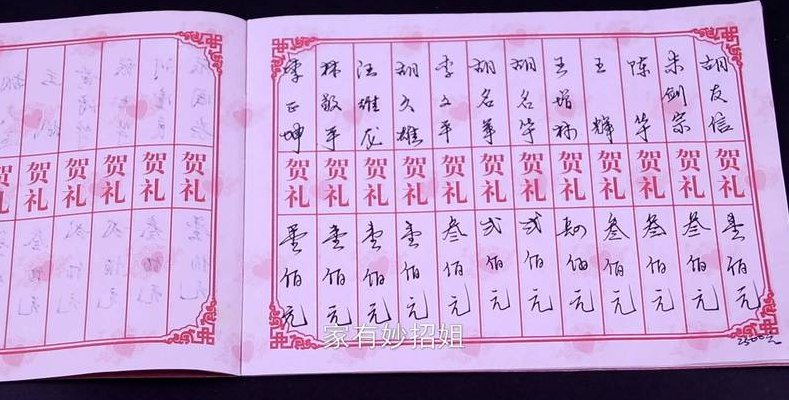 胡友信 贺礼 壹佰元
朱剑宗 贺礼 叁佰元
陈华 贺礼 叁佰元
王辉 贺礼 叁佰元
王 贺礼 肆佰元
胡名华 贺礼 弍佰元
胡名军 贺礼 弍佰元
李文平 贺礼 叁佰元
胡久雄 贺礼 壹佰元
汪雄龙 贺礼 壹佰元
林敬平 贺礼 壹佰元
李正坤 贺礼 壹佰元
2500元
贺礼
贺礼
贺礼
贺礼
贺礼
贺礼
家有妙招姐